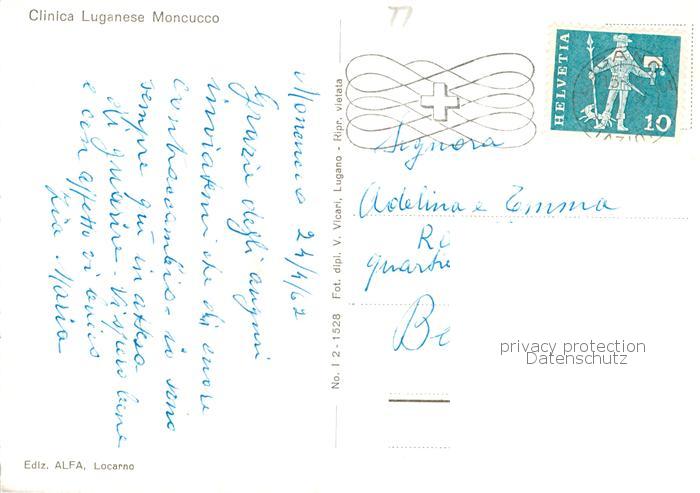 Clinica Luganese Moncucco
Moncucco 24/4/62
Grazie degli auguri
inviatemi che di cuore
contraccambio - io sono
sempre quì in attesa
di guarire. Vi spero bene
e con affetto vi bacio
zia Maria
Ediz. ALFA, Locarno
No. I 2 - 1528 Fot. dipl. V. Vicari, Lugano - Ripr. vietata
HELVETIA
10
Signora
Adelina e Emma
Ro
quartie
Be
privacy protection
Datenschutz